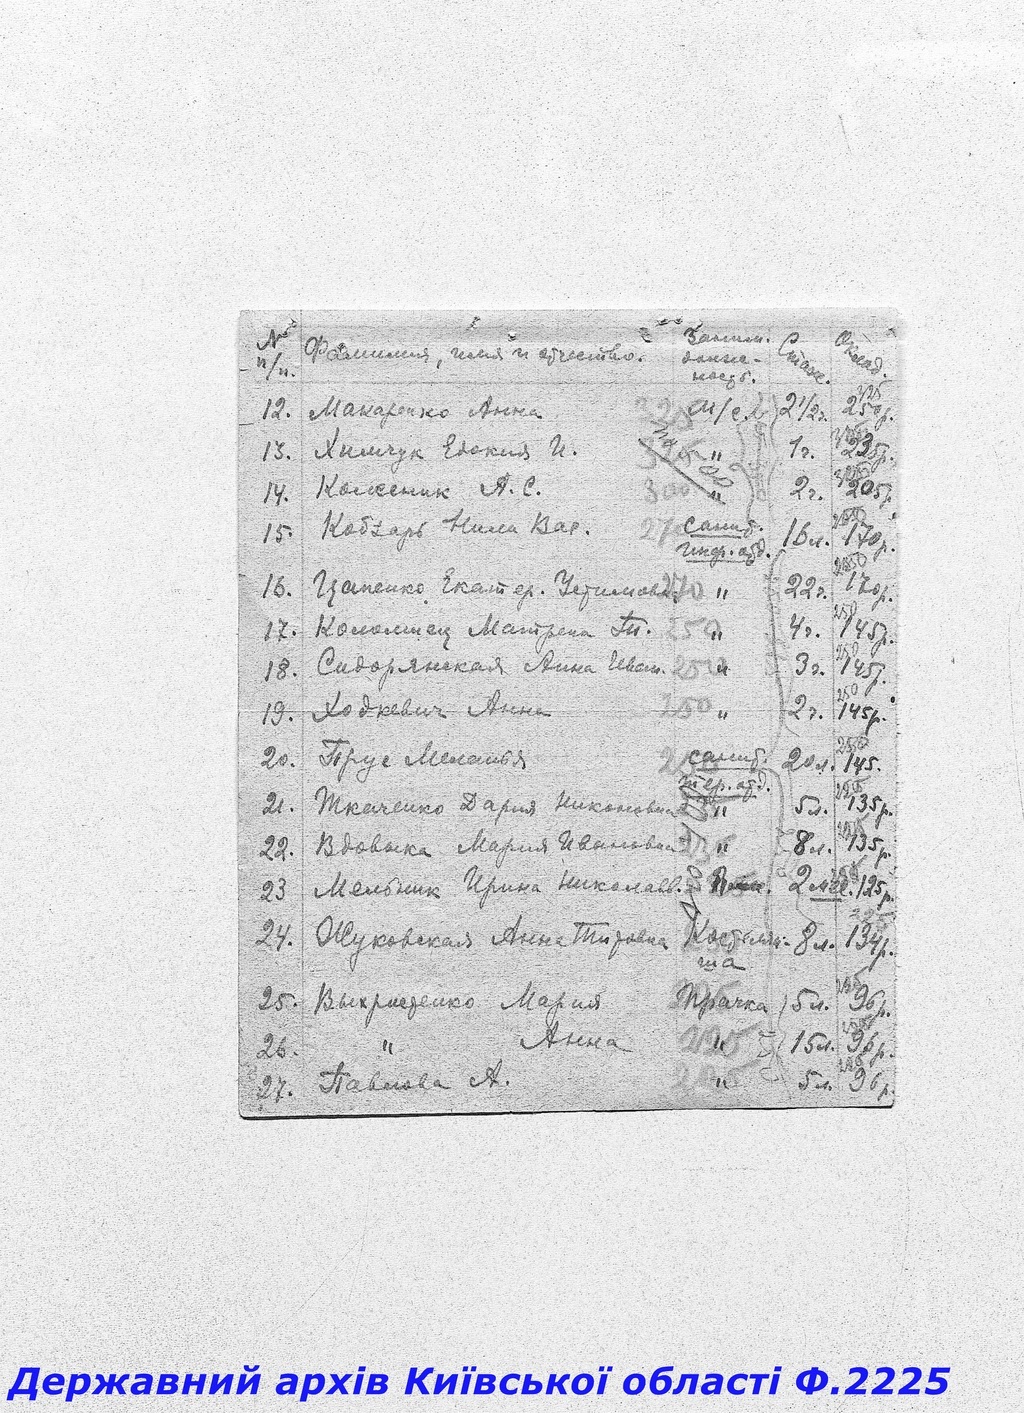 № п/п. Фамилия, имя и отчество. Заним. должность. Стаж. Оклад.
12. Макаренко Анна 325 м/с. 2 1/2 г. 250р.
13. Химчук Евдокия И. " 1г. 225р.
14. Колесник А. С. 300 " 2г. 205р.
15. Кобзарь Нила Вас. 270 санит. инф. отд. 16л. 170р.
16. Цапенко Екатер. Устимовн. 270 " 22г. 170р.
17. Коломиец Матрена Т. 250 " 4г. 250 145р.
18. Сидорянская Анна Иван. 250 " 3г. 250 145р.
19. Ходкевич Анна 250 " 2г. 250 145р.
20. Прус Мелания санит. тер. отд. 20л. 250 145.
21. Ткаченко Дария Никоновна " 5л. 135р.
22. Вдовыка Мария Ивановна " 8л. 135р.
23 Мельник Ирина Николаев. 2 мес. 125р.
24. Жуковская Анна Титовна Кастелянша 8л. 225 134р.
25. Выхристенко Мария Прачка 5л. 96р.
26. " Анна 225 " 15л. 96р.
27. Павлова А. 225 " 5л. 225 96р.
Державний архів Київської області Ф.2225